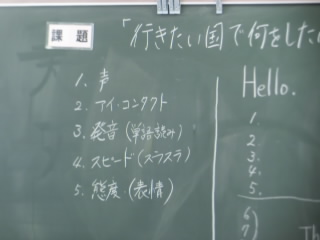 課題
「行きたい国で何をした
1. 声
2. アイ・コンタクト
3. 発音（単語読み）
4. スピード（スラスラ）
5. 態度（表情）
Hello.
1.
2.
3.
4.
5.
6)
7)
Th